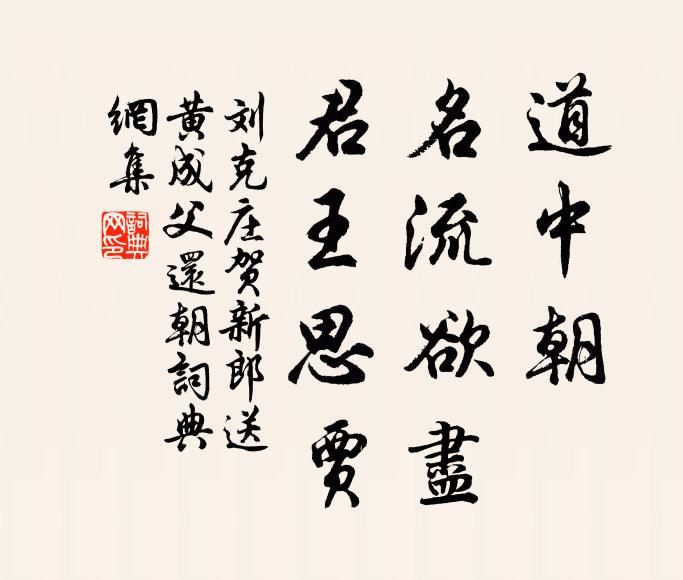 道中朝
名流欲盡
君王思賈
刘克庄贺新郎送
黄成父還朝詞典
網集
詞典
网印